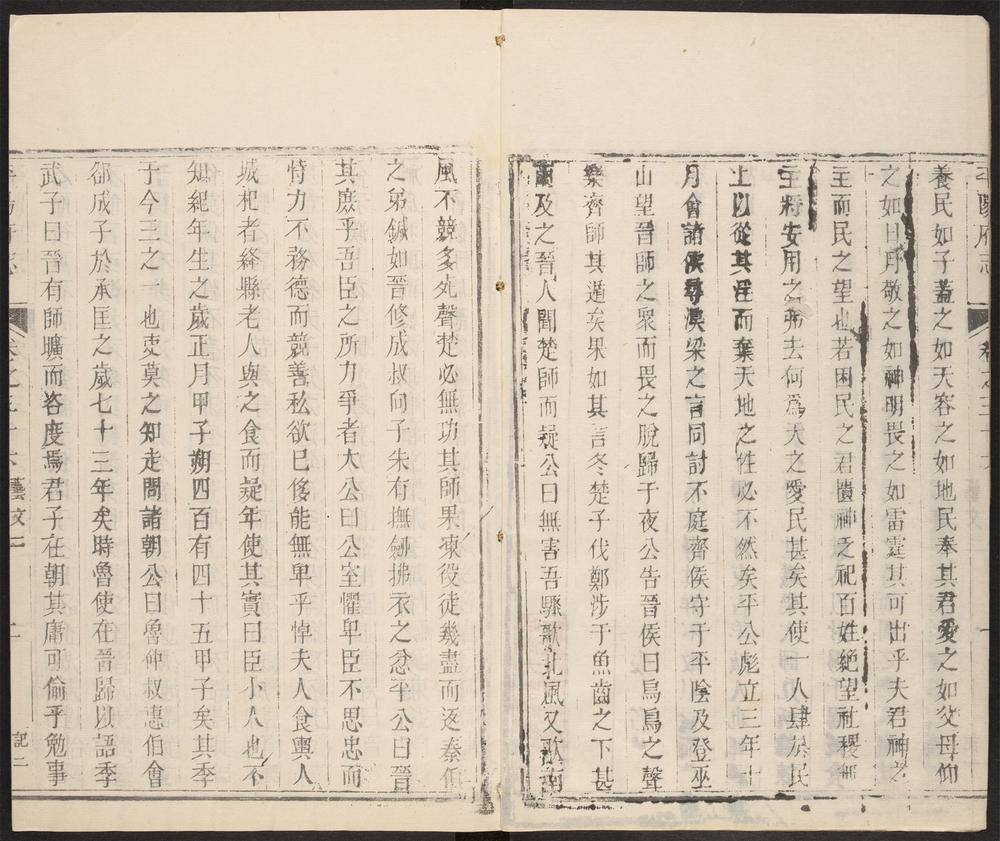 平陽府志
卷之三十六
養民如子蓋之如天容之如地民奉其君愛之如父母仰
之如日月敬之如神明畏之如雷霆其可出乎夫君神之
主而民之望也若困民之君匱神乏祀百姓絶望社稷無
主將安用之弗去何爲天之愛民甚矣其使一人肆於民
上以從其淫而棄天地之性必不然矣平公彪立三年十
月會諸侯尋湨梁之言同討不庭齊侯守于平陰及登巫
山望晉師之眾而畏之脫歸子夜公告晉侯曰鳥鳥之聲
樂齊師其遁矣果如其言冬楚子伐鄭涉于魚齒之下甚
雨及之晉人聞楚師而疑公曰無害吾驟歌北風又歌南
風不競多死聲楚必無功其師果凍役徒幾盡而返秦伯
之弟鍼如晉修成叔向子朱有撫劒拂衣之忿平公曰晉
其庶乎吾臣之所力爭者大公曰公室懼卑臣不思忠而
恃力不務德而競善私欲巳侈能無卑乎悼夫人食輿人
城杞者絳縣老人與之食而疑年使其實曰臣小人也不
知紀年生之歲正月甲子朔四百有四十五甲子矣其季
于今三之一也吏莫之知走問諸朝公曰魯仲叔惠伯會
郤成子於承匡之歲七十三年矣時魯使在晉歸以語季
武子曰晉有師曠而咨度焉君子在朝其庸可偷乎勉事
平陽府志
卷之三十六 藝文一
二
記二